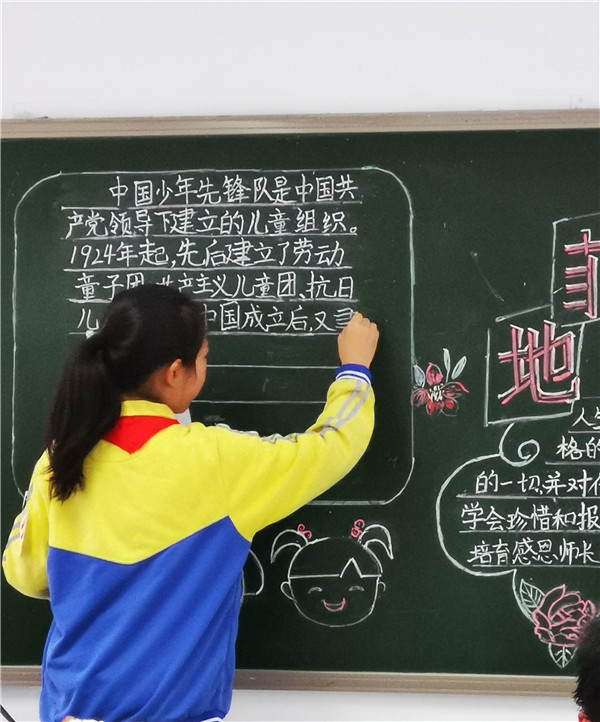 中国少年先锋队是中国共
产党领导下建立的儿童组织。
1924年起,先后建立了劳动
童子团、共产主义儿童团、抗日
儿 中国成立后,又
地
人生
格的
的一切,并对
学会珍惜和报
培育感恩师长